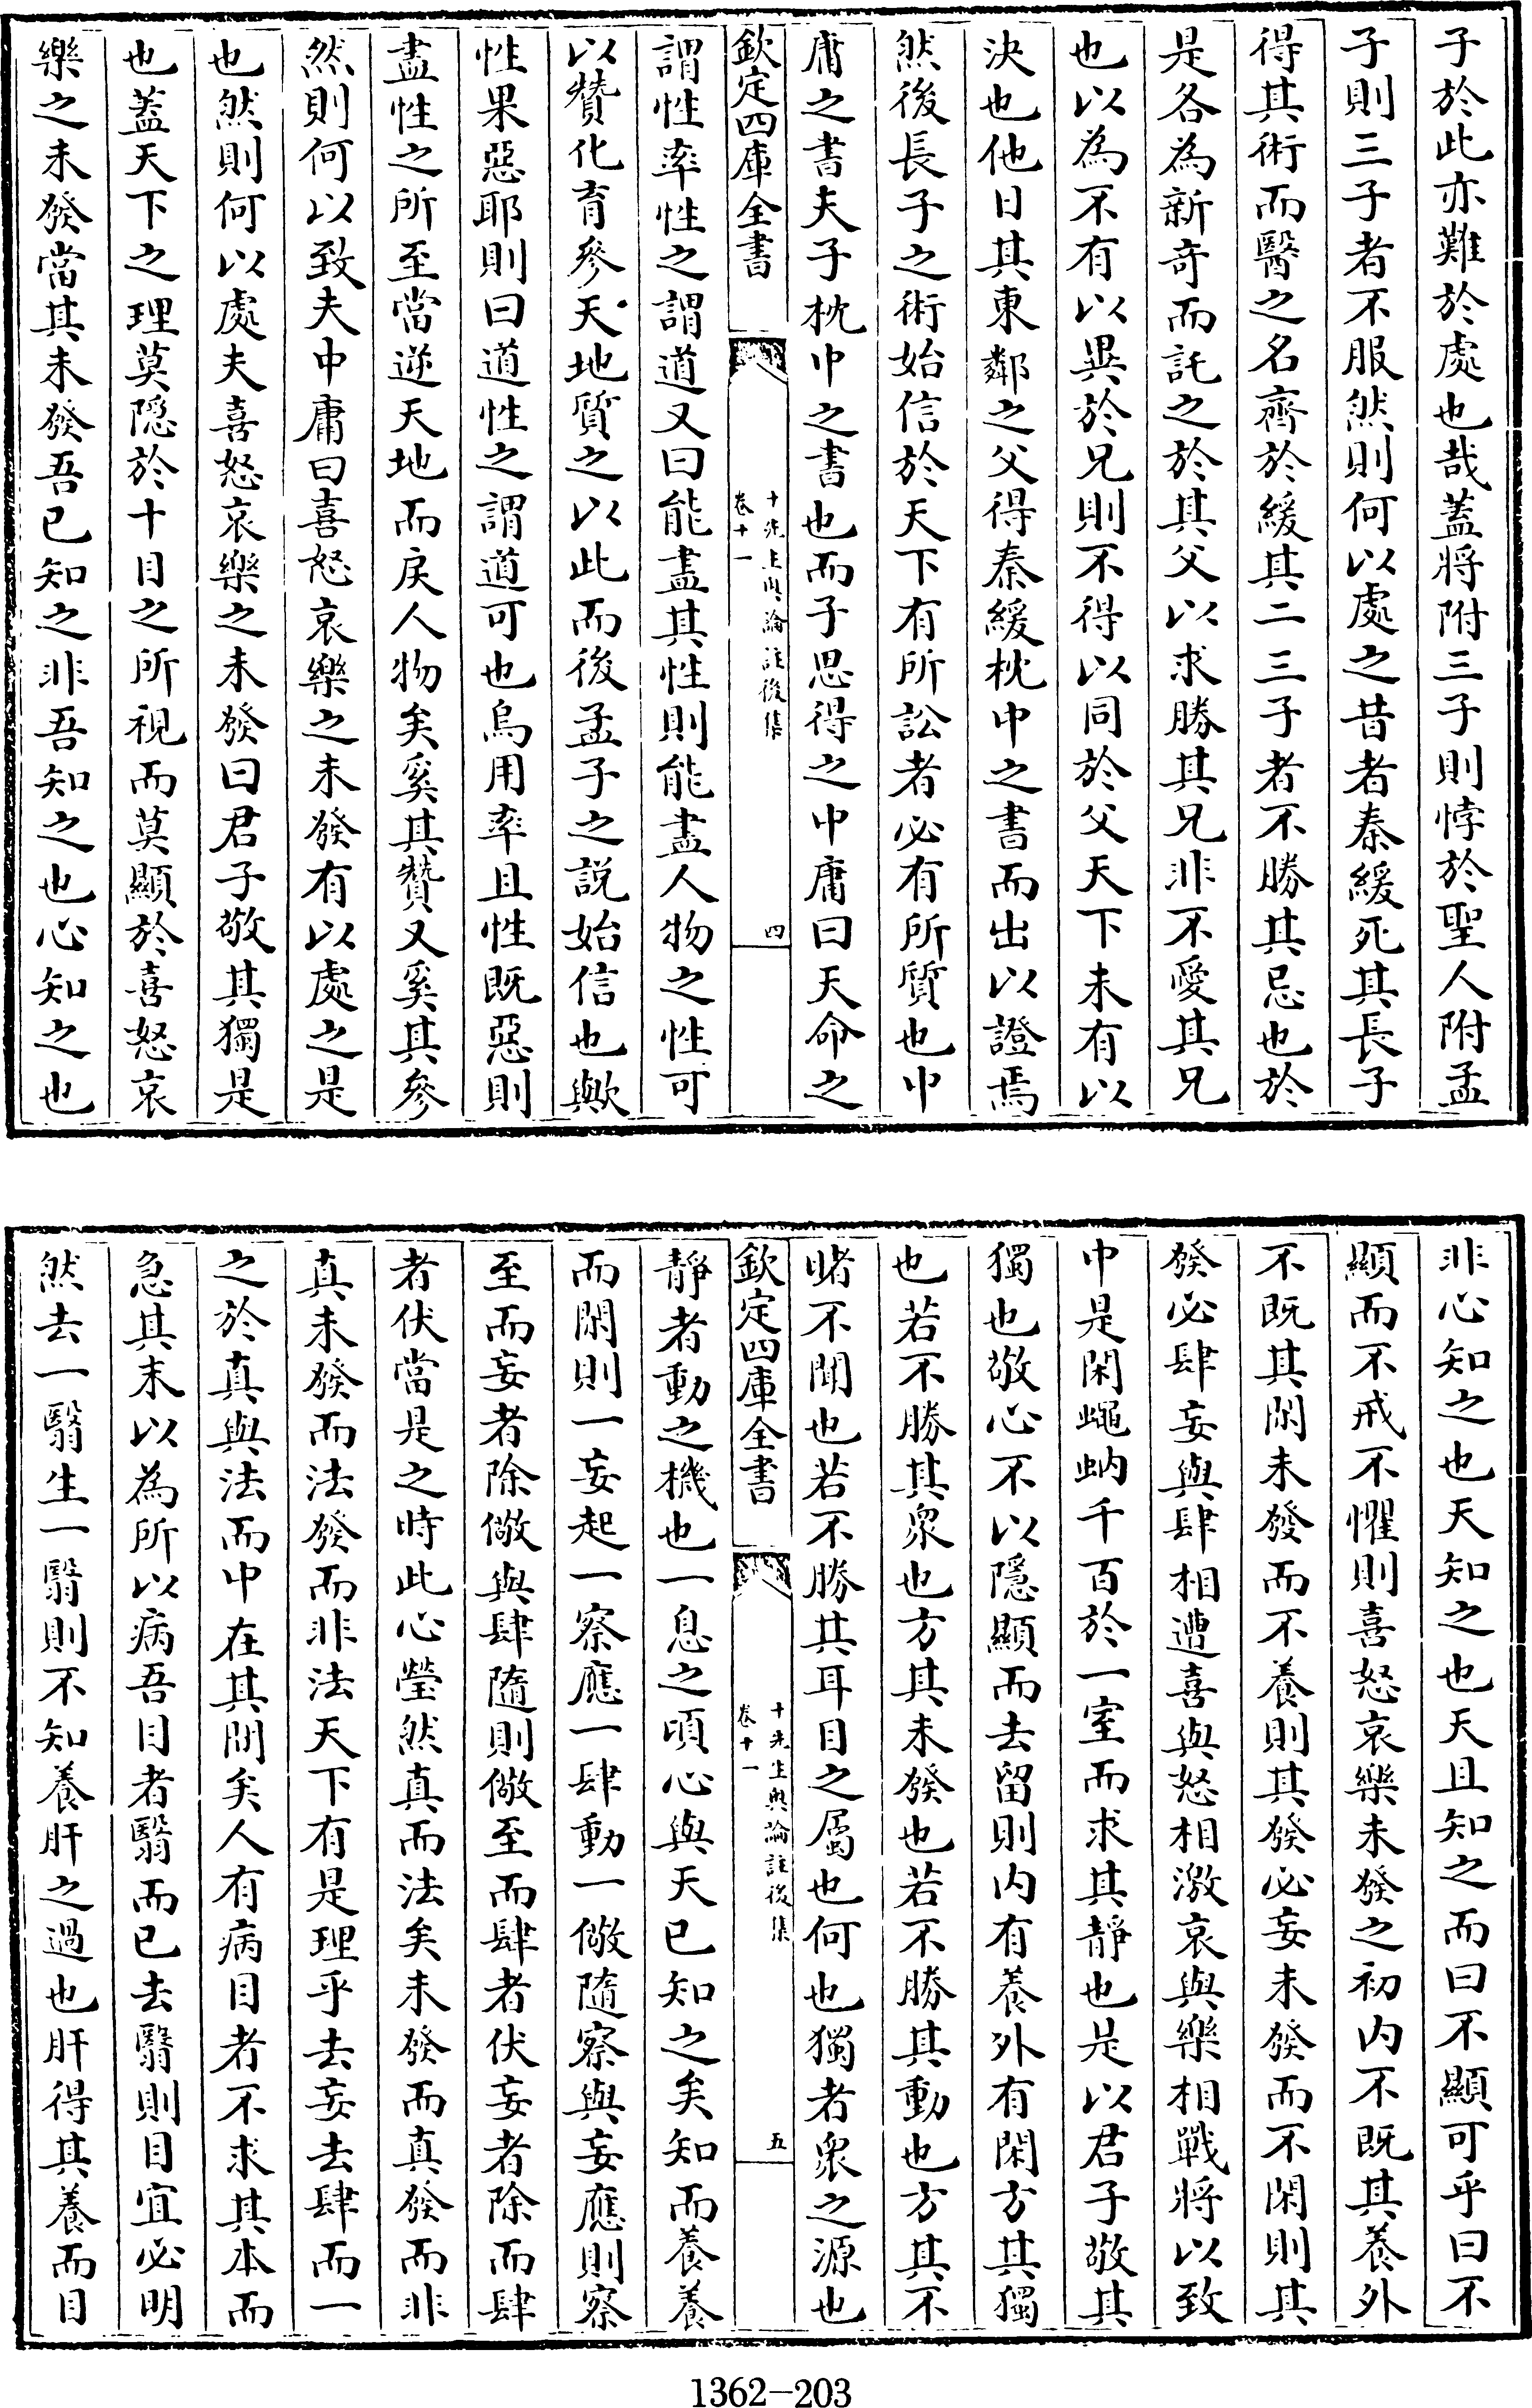 子於此亦難於處也哉蓋將附三子則悖於聖人附孟
子則三子者不服然則何以處之昔者秦緩死其長子
得其術而醫之名齊於緩其二三子者不勝其忌也於
是各為新奇而託之於其父以求勝其兄非不愛其兄
也以為不有以異於兄則不得以同於父天下未有以
決也他日其東鄰之父得秦緩枕中之書而出以證焉
然後長子之術始信於天下有所訟者必有所質也中
庸之書夫子枕中之書也而子思得之中庸曰天命之
欽定四庫全書
十先生奧論註後集
卷十一
四
謂性率性之謂道又曰能盡其性則能盡人物之性可
以贊化育參天地質之以此而後孟子之說始信也歟
性果惡耶則曰道性之謂道可也烏用率且性既惡則
盡性之所至當逆天地而戾人物矣奚其贊又奚其參
然則何以致夫中庸曰喜怒哀樂之未發有以處之是
也然則何以處夫喜怒哀樂之未發曰君子敬其獨是
也蓋天下之理莫隱於十目之所視而莫顯於喜怒哀
樂之未發當其未發吾已知之非吾知之也心知之也
非心知之也天知之也天且知之而曰不顯可乎曰不
顯而不戒不懼則喜怒哀樂未發之初內不既其養外
不既其閑未發而不養則其發必妄未發而不閑則其
發必肆妄與肆相遭喜與怒相激哀與樂相戰將以致
中是閑蠅蚋千百於一室而求其靜也是以君子敬其
獨也敬心不以隱顯而去留則內有養外有閑方其獨
也若不勝其衆也方其未發也若不勝其動也方其不
睹不聞也若不勝其耳目之屬也何也獨者衆之源也
欽定四庫全書
十先生奧論註後集
卷十一
五
靜者動之機也一息之頃心與天已知之矣知而養養
而閑則一妄起一察應一肆動一儆隨察與妄應則察
至而妄者除儆與肆隨則儆至而肆者伏妄者除而肆
者伏當是之時此心瑩然真而法矣未發而真發而非
真未發而法發而非法天下有是理乎去妄去肆而一
之於真與法而中在其間矣人有病目者不求其本而
急其末以為所以病吾目者翳而已去翳則目宜必明
然去一翳生一翳則不知養肝之過也肝得其養而目
1362-203